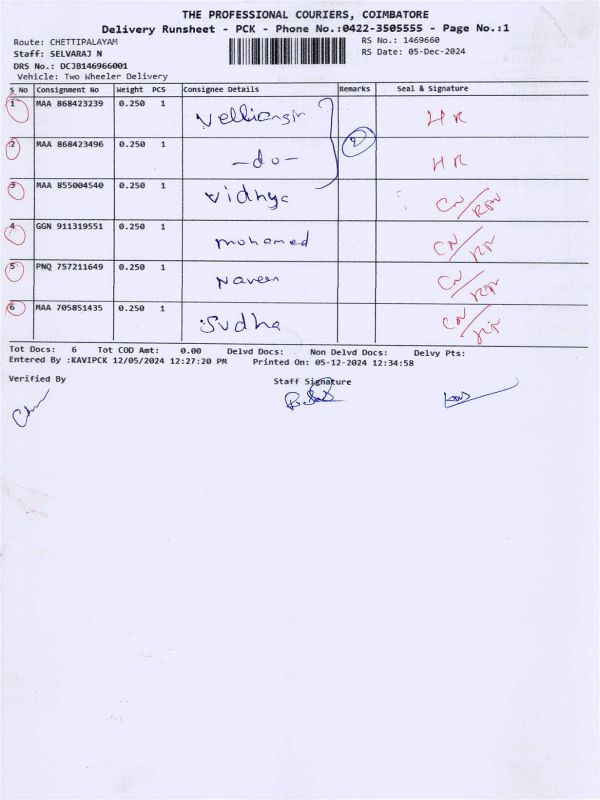 THE PROFESSIONAL COURIERS, COIMBATORE
Delivery Runsheet - PCK - Phone No.:0422-3505555 - Page No.:1
Route: CHETTIPALAYAM RS No.: 1469660
Staff: SELVARAJ N RS Date: 05-Dec-2024
DRS No.: DCJB146966001
Vehicle: Two Wheeler Delivery
S No Consignment No Weight PCS Consignee Details Remarks Seal & Signature
1 MAA 868423239 0.250 1 Velliangiri HR
2 MAA 868423496 0.250 1 -do- 2 HR
3 MAA 855004540 0.250 1 Vidhya CN/RN
4 GGN 911319551 0.250 1 mohamed CN/RN
5 PNQ 757211649 0.250 1 Naveen CN/RN
6 MAA 705851435 0.250 1 Sudha CN/RN
Tot Docs: 6 Tot COD Amt: 0.00 Delvd Docs: Non Delvd Docs: Delvy Pts:
Entered By :KAVIPCK 12/05/2024 12:27:20 PM Printed On: 05-12-2024 12:34:58
Verified By Staff Signature